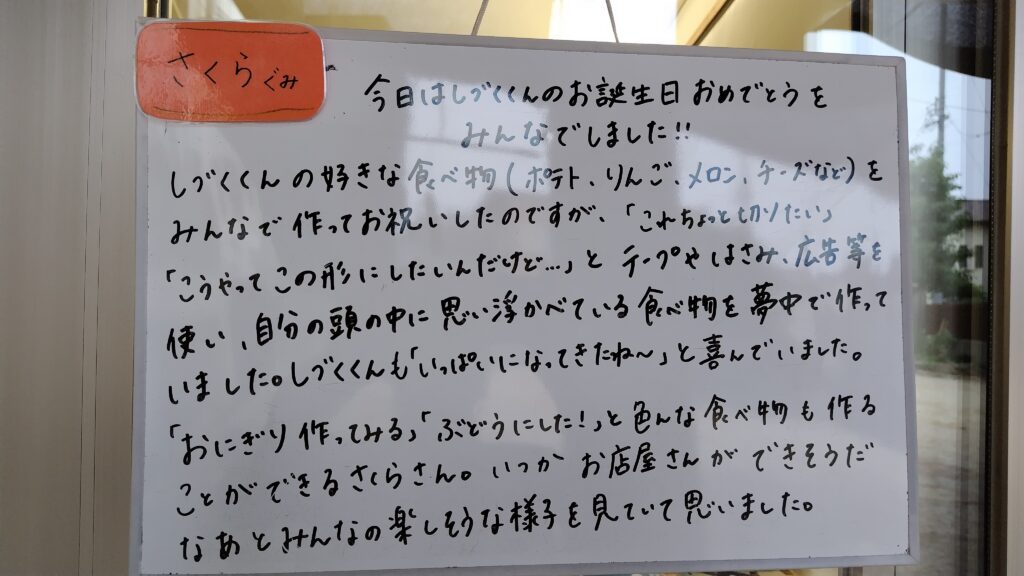 さくらぐみ
今日はしづくくんのお誕生日おめでとうを
みんなでしました!!
しづくくんの好きな食べ物(ポテト、りんご、メロン、チーズなど)を
みんなで作ってお祝いしたのですが、「これちょっと切りたい」
「こうやってこの形にしたいんだけど…」とテープやはさみ、広告等を
使い、自分の頭の中に思い浮かべている食べ物を夢中で作って
いました。しづくくんも「いっぱいになってきたね〜」と喜んでいました。
「おにぎり作ってみる」「ぶどうにした!」と色んな食べ物も作る
ことができるさくらさん。いつかお店屋さんができそうだ
なあとみんなの楽しそうな様子を見ていて思いました。